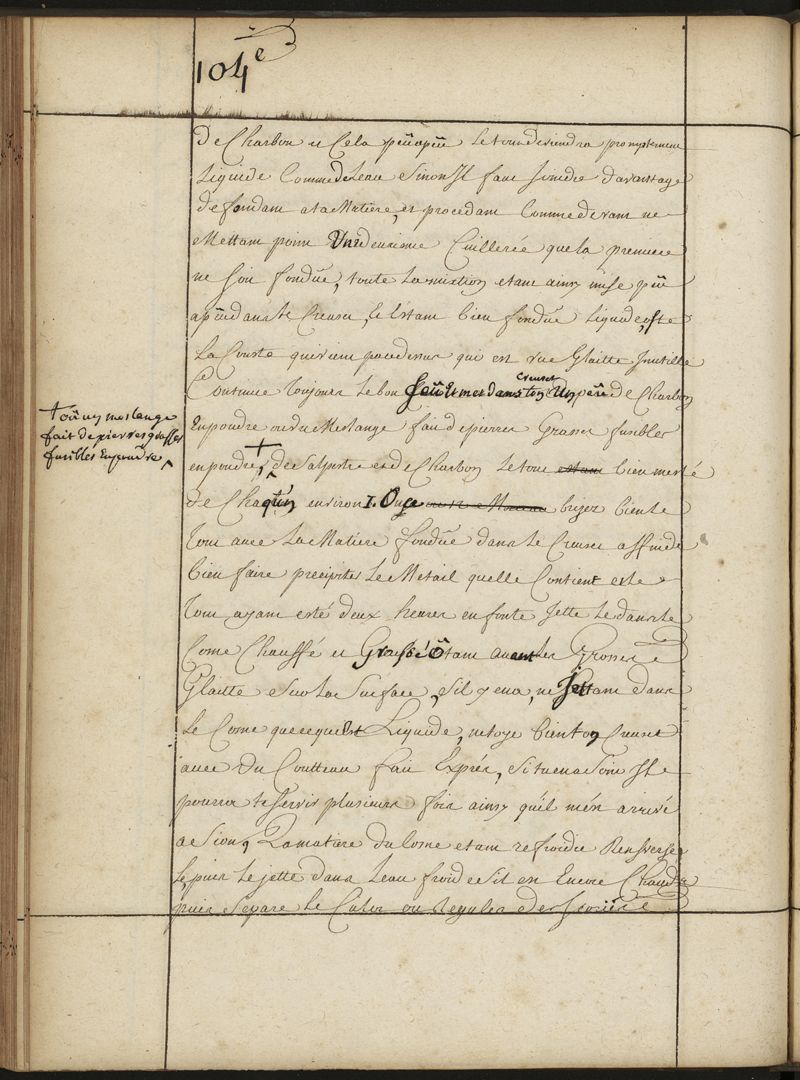 104e
de Charbon et Cela peu apeu le tout deviendra promptement
Liquide Comme de Leau Sinon Il faut Joindre davantage
de fondant a la Matiere, et procedant Comme devant ne
Mettant point Une deuxieme Cuillerée que la premiere
ne soit fondüe, toute La mixtion etant ainsy mise peu
apeu dans le Creuset, et Estant bien fondüe Liquide, oste
La Crouste qui vient par dessus qui est une Glaitte Inutille
Continue Toujours Le bon feü Et mes dans ton Creuset Un peü de Charbon
En poudre ou du Meslange fait de pierres Grasses fusibles
en poudre + de Salpetre et de Charbon Le tout etant bien meslé
de Chaqún environ 1. Once brizez bien le
Tout avec La Matiere fondüe dans le Creuset affin de
bien faire precipiter Le Metail quelle Contient et le
Tout ayant esté deux heures en fonte Jette le dans le
Cone Chauffé et Graissé Ôtant avant les Grosses
Glaitte Sur la Surface, Sil y en a, ne Jettant dans
Le Cone que ce qui est Liquide, netoye bien ton Creuset
avec Du Coutteau fait Exprés, Si tu en a Soin Il
pourra te Servir plusieurs fois ainsy quil m'ést arrivé
a Sion, La matiere du Cone etant refroidie Renverse
Le, puis Le jette dans Leau froide Sil est Encore Chaud
puis Separe Le Culot ou Regule des Scories
+ oû un meslange
fait de pierres grasses
fusibles En poudre